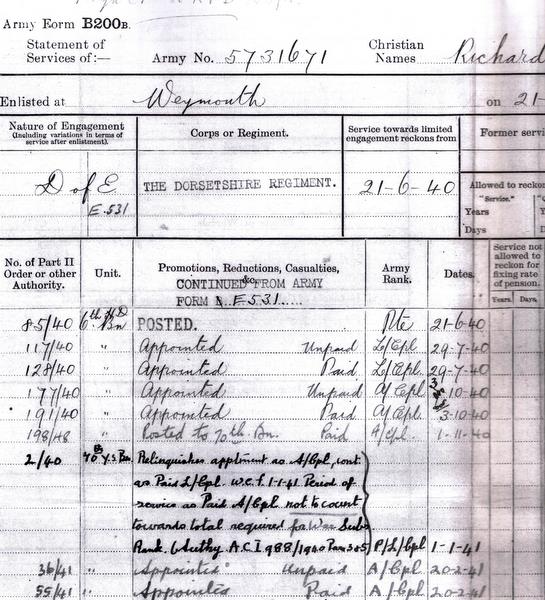 Army Form B200B.
Statement of Services of:— Army No. 5731671 Christian Names Richard
Enlisted at Weymouth on 21-
Nature of Engagement (Including variations in terms of service after enlistment). Corps or Regiment. Service towards limited engagement reckons from Former servi
D of E E.531 THE DORSETSHIRE REGIMENT. 21-6-40 Allowed to reckon
"Service."
Years
Days
No. of Part II Order or other Authority. Unit. Promotions, Reductions, Casualties, &c. Army Rank. Dates. Service not allowed to reckon for fixing rate of pension.
CONTINUED FROM ARMY
FORM E531 Years. Days.
85/40 6th H.D Bn POSTED. Pte 21-6-40
117/40 " Appointed Unpaid L/Cpl. 29-7-40
128/40 " Appointed Paid L/Cpl. 29-7-40
177/40 " Appointed Unpaid A/Cpl. 3-10-40
191/40 " Appointed Paid A/Cpl. 3-10-40
" Posted to 70th Bn. Paid A/Cpl. 1-11-40
2/40 70 Y.S. Bn. Relinquishes apptment as A/Cpl, cont.
as Paid L/Cpl. w.e.f. 1-1-41 Period of
service as Paid A/Cpl not to count
towards total required for War Subs.
Rank. (Authy A.C.I 988/1940 Para 305) P/L/Cpl 1-1-41
36/41 " Appointed Unpaid A/Cpl 20-2-41
55/41 " Appointed Paid A/Cpl 20-2-41